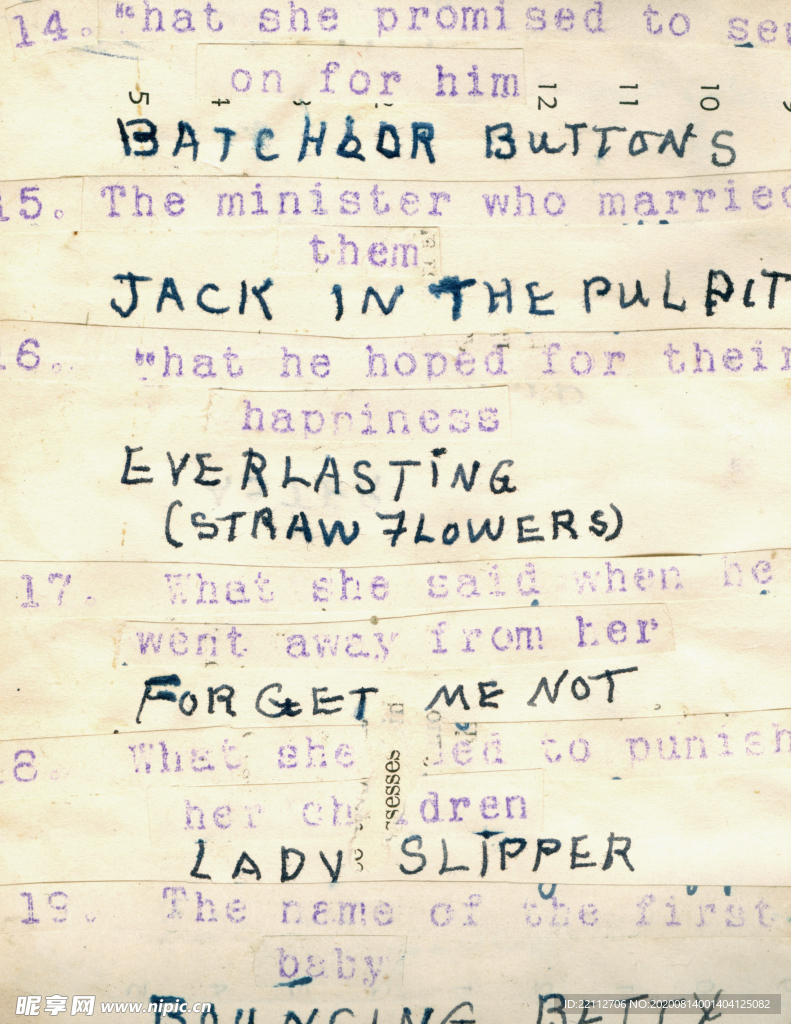 14. What she promised to sew
on for him
5 12 11 10
BATCHLOR BUTTONS
15. The minister who married
them
JACK IN THE PULPIT
16. What he hoped for their
happiness
EVERLASTING
(STRAW FLOWERS)
17. What she said when he
went away from her
FORGET ME NOT
8. What she led to punish
her ch dren
ssesses
LADY SLIPPER
19. The name of the first
baby
BOUNCING BETTY
昵享网 www.nipic.cn
ID:22112706 NO:20200814001404125082